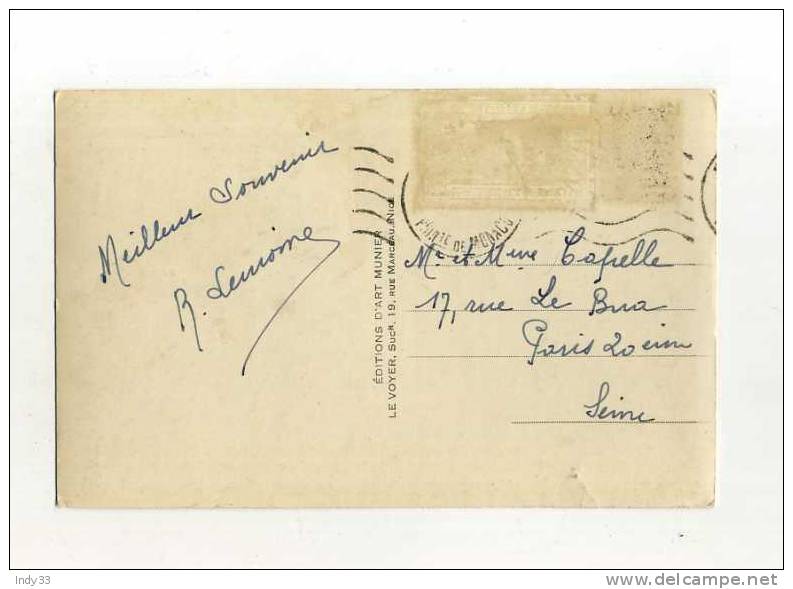 Meilleur Souvenir
R. Lemoine
ÉDITIONS D'ART MUNIER
LE VOYER, SucR. 19, RUE MARCEAU, NICE
DE MONACO
Mr et Mme Capelle
17, rue Le Bua
Paris 20 eim
Seine
Indy33
www.delcampe.net